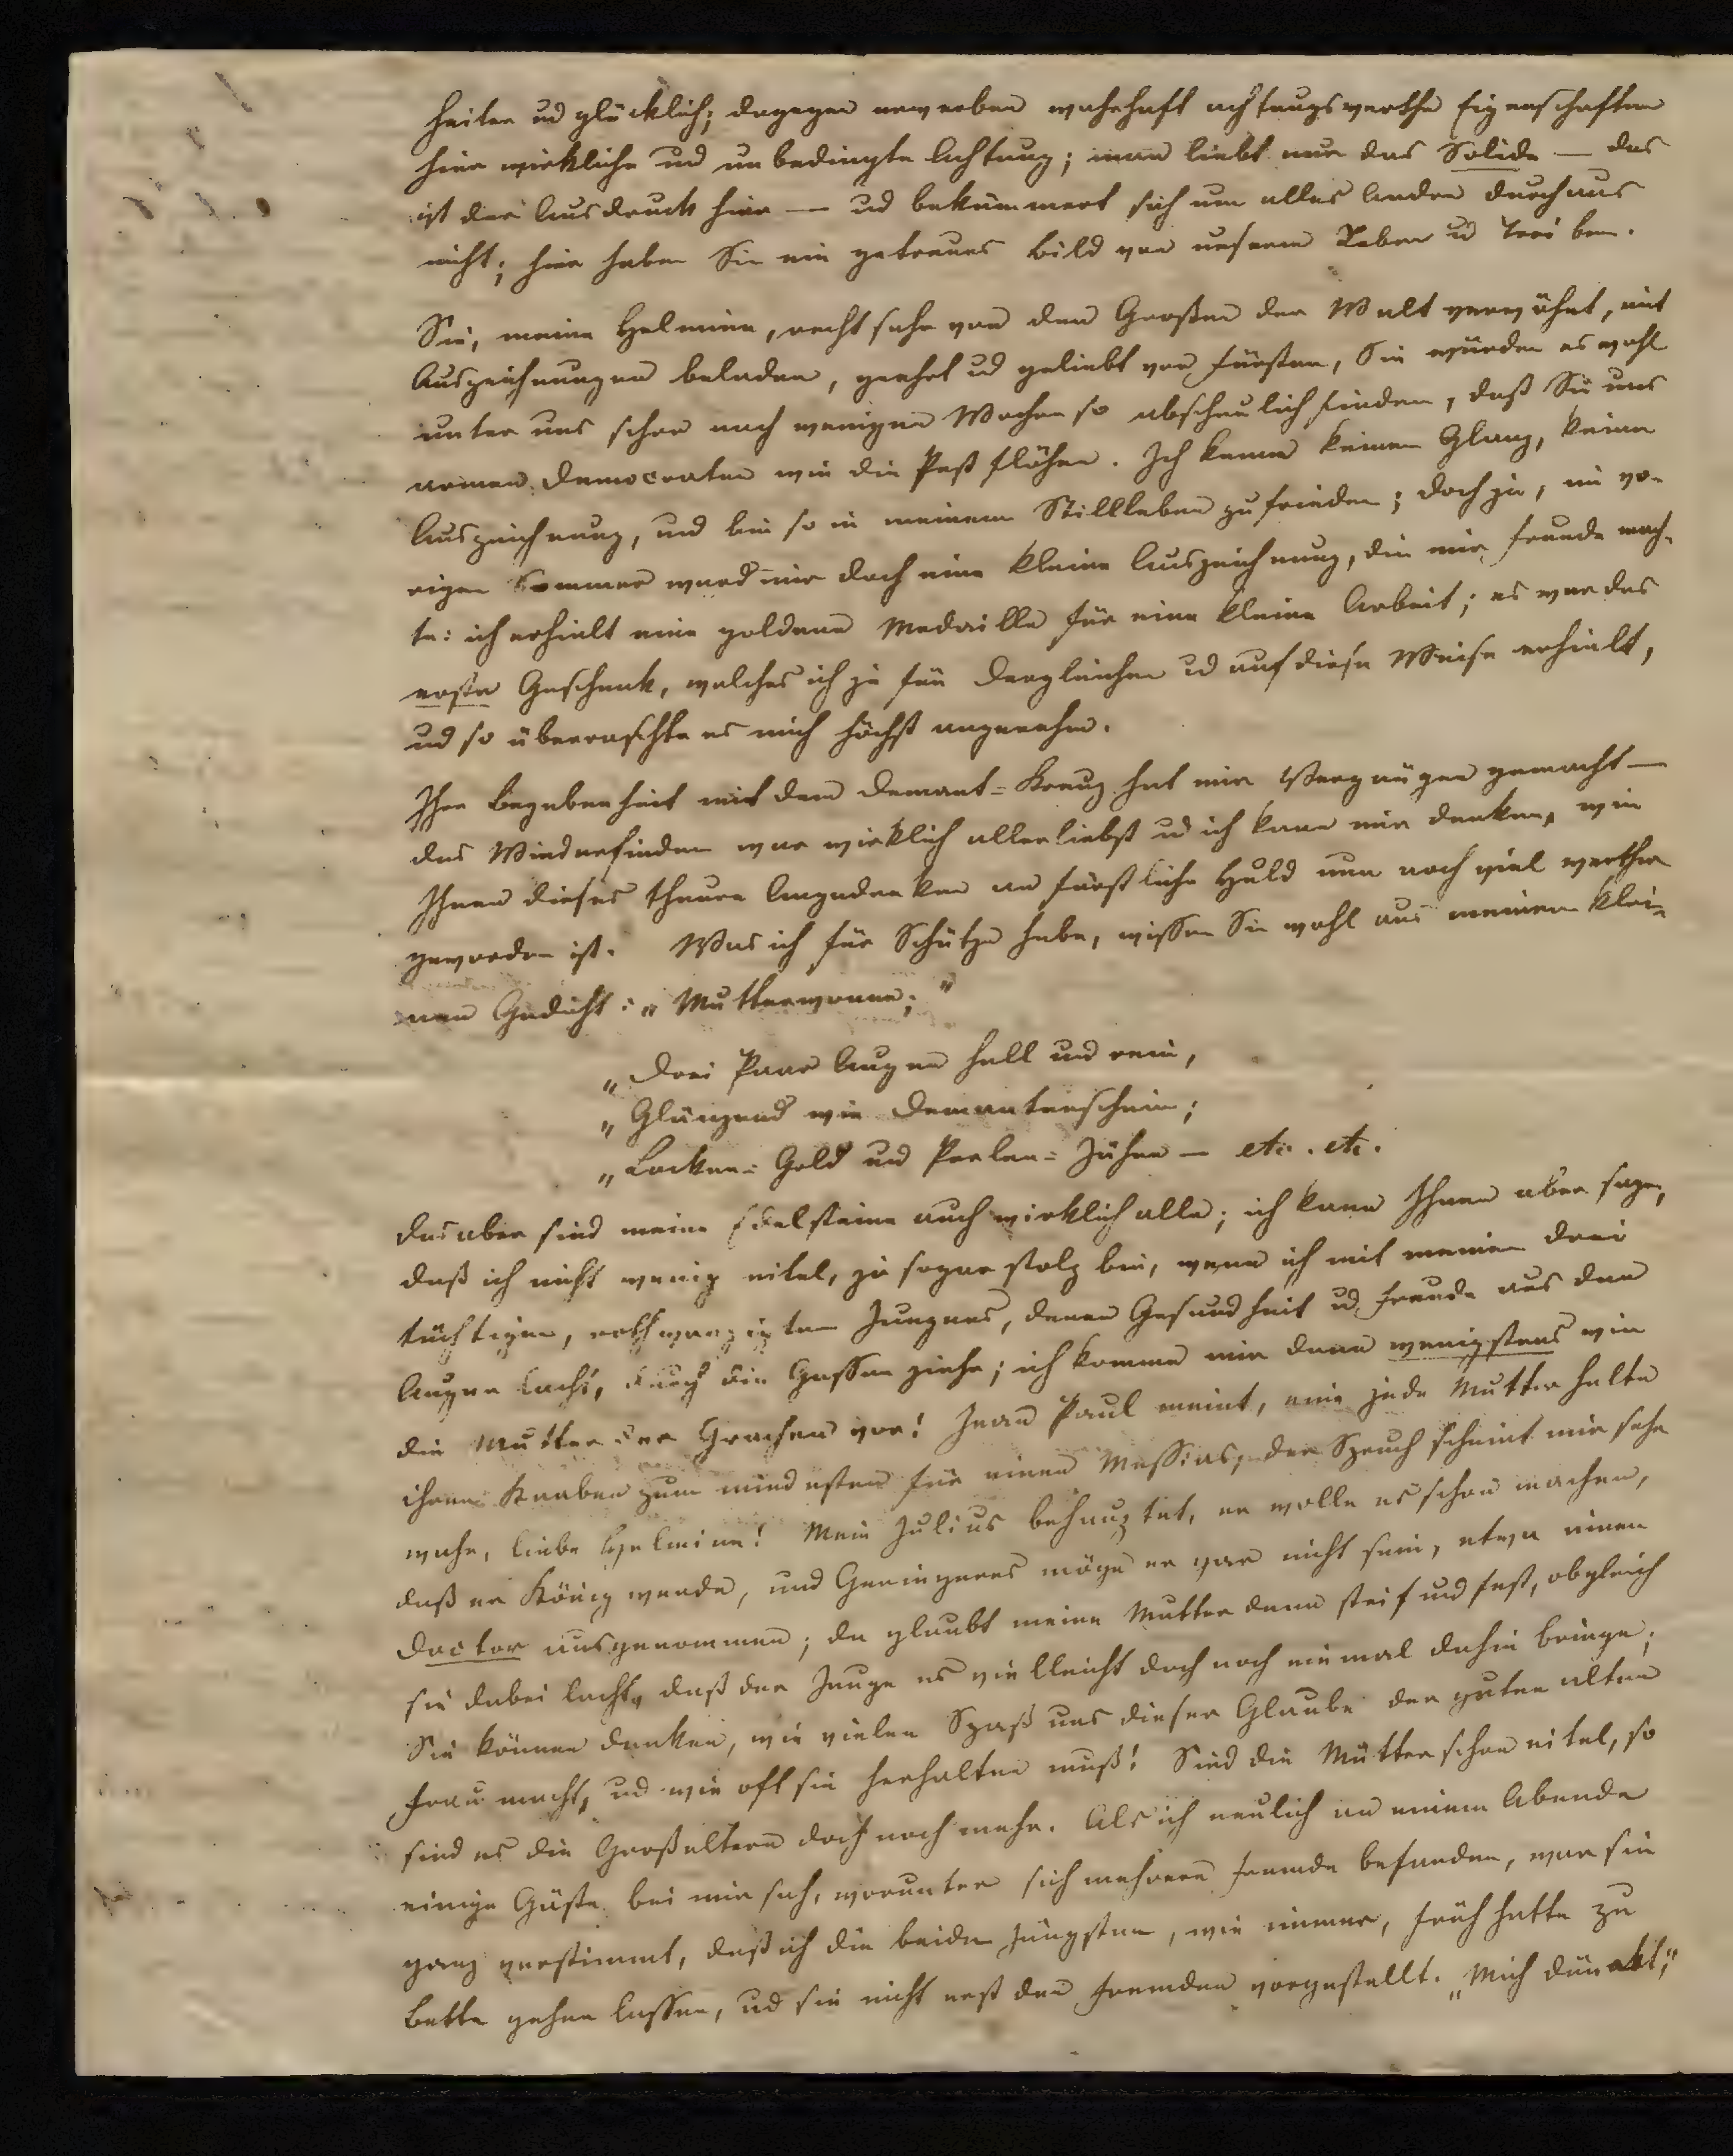 heiter ud glücklich; dagegen erwerben wahrhaft achtungswerthe Eigenschaften
hier wirkliche ud unbedingte Achtung; man liebt nur das Solide — das
ist der Ausdruck hier — ud bekümmert sich um alles Andre durchaus
nicht; hier haben Sie ein getreues Bild von unserm Leben ud Treiben.
Sie, meine Helmina, recht sehr von den Großen der Welt verwöhnt, mit
Auszeichnungen beladen, geehrt ud geliebt von Fürsten, Sie würden es wohl
unter uns schon nach wenigen Wochen so abscheulich finden, daß Sie uns
armen Democraten wie die Pest flöhen. Ich kenne keinen Glanz, keine
Auszeichnung, und bin so in meinem Stillleben zufrieden; doch ja, im vo-
rigen Sommer ward mir doch eine kleine Auszeichnung, die mir Freude mach-
te: ich erhielt eine goldene Medaille für eine kleine Arbeit; es war das
erste Geschenk, welches ich je für dergleichen ud auf diese Weise erhielt,
ud so überraschte es mich höchst angenehm.
Ihre Begebenheit mit dem Demant-Kreuz hat mir Vergnügen gemacht —
das Wiederfinden war wirklich allerliebst ud ich kann mir denken, wie
Ihnen dieses theure Angedenken an fürstliche Huld nun noch viel werther
geworden ist. Was ich für Schätze habe, wissen Sie wohl aus meinem klei-
nen Gedicht: „Mutterwonne;"
„Drei Paar Augen hell und rein,
„Glänzend wie Demantenschein;
„Locken-Gold und Perlen-Zähne — etc. etc.
das aber sind meine Edelsteine auch wirklich alle; ich kann Ihnen aber sagen,
daß ich nicht wenig eitel, ja sogar stolz bin, wenn ich mit meinen drei
tüchtigen, rothwangigten Jungens, denen Gesundheit ud Freude aus den
Augen lacht, durch die Gassen ziehe; ich komme mir dann wenigstens wie
die Mutter der Grachen vor! Jean Paul meint, eine jede Mutter halte
ihren Knaben zum mindesten für einen Messias, der Spruch scheint mir sehr
wahr, liebe Helmina! Mein Julius behauptet, er wolle es schon machen,
daß er König werde, und Geringeres möge er gar nicht sein, etwa einen
Doctor ausgenommen; da glaubt meine Mutter denn steif und fest, obgleich
sie dabei lacht, daß der Junge es vielleicht doch noch einmal dahin bringe;
Sie können denken, wie vielen Spaß uns dieser Glaube der guten alten
Frau macht, ud wie oft sie herhalten muß! Sind die Mütter schon eitel, so
sind es die Großeltern doch noch mehr. Als ich neulich an einem Abende
einige Gäste bei mir sah, worunter sich mehrere Fremde befanden, war sie
ganz verstimmt, daß ich die beiden Jüngsten, wie immer, früh hatte zu
Bette gehen lassen, ud sie nicht erst den Fremden vorgestellt. „Mich dünckt,"